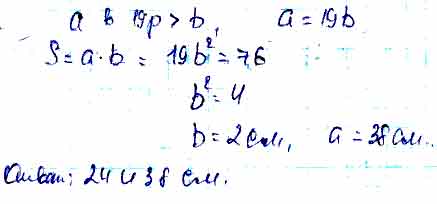 a в 19р > b, a = 19b
S = a · b = 19b² = 76
b² = 4
b = 2 см, a = 38 см.
Ответ: 2 и 38 см.